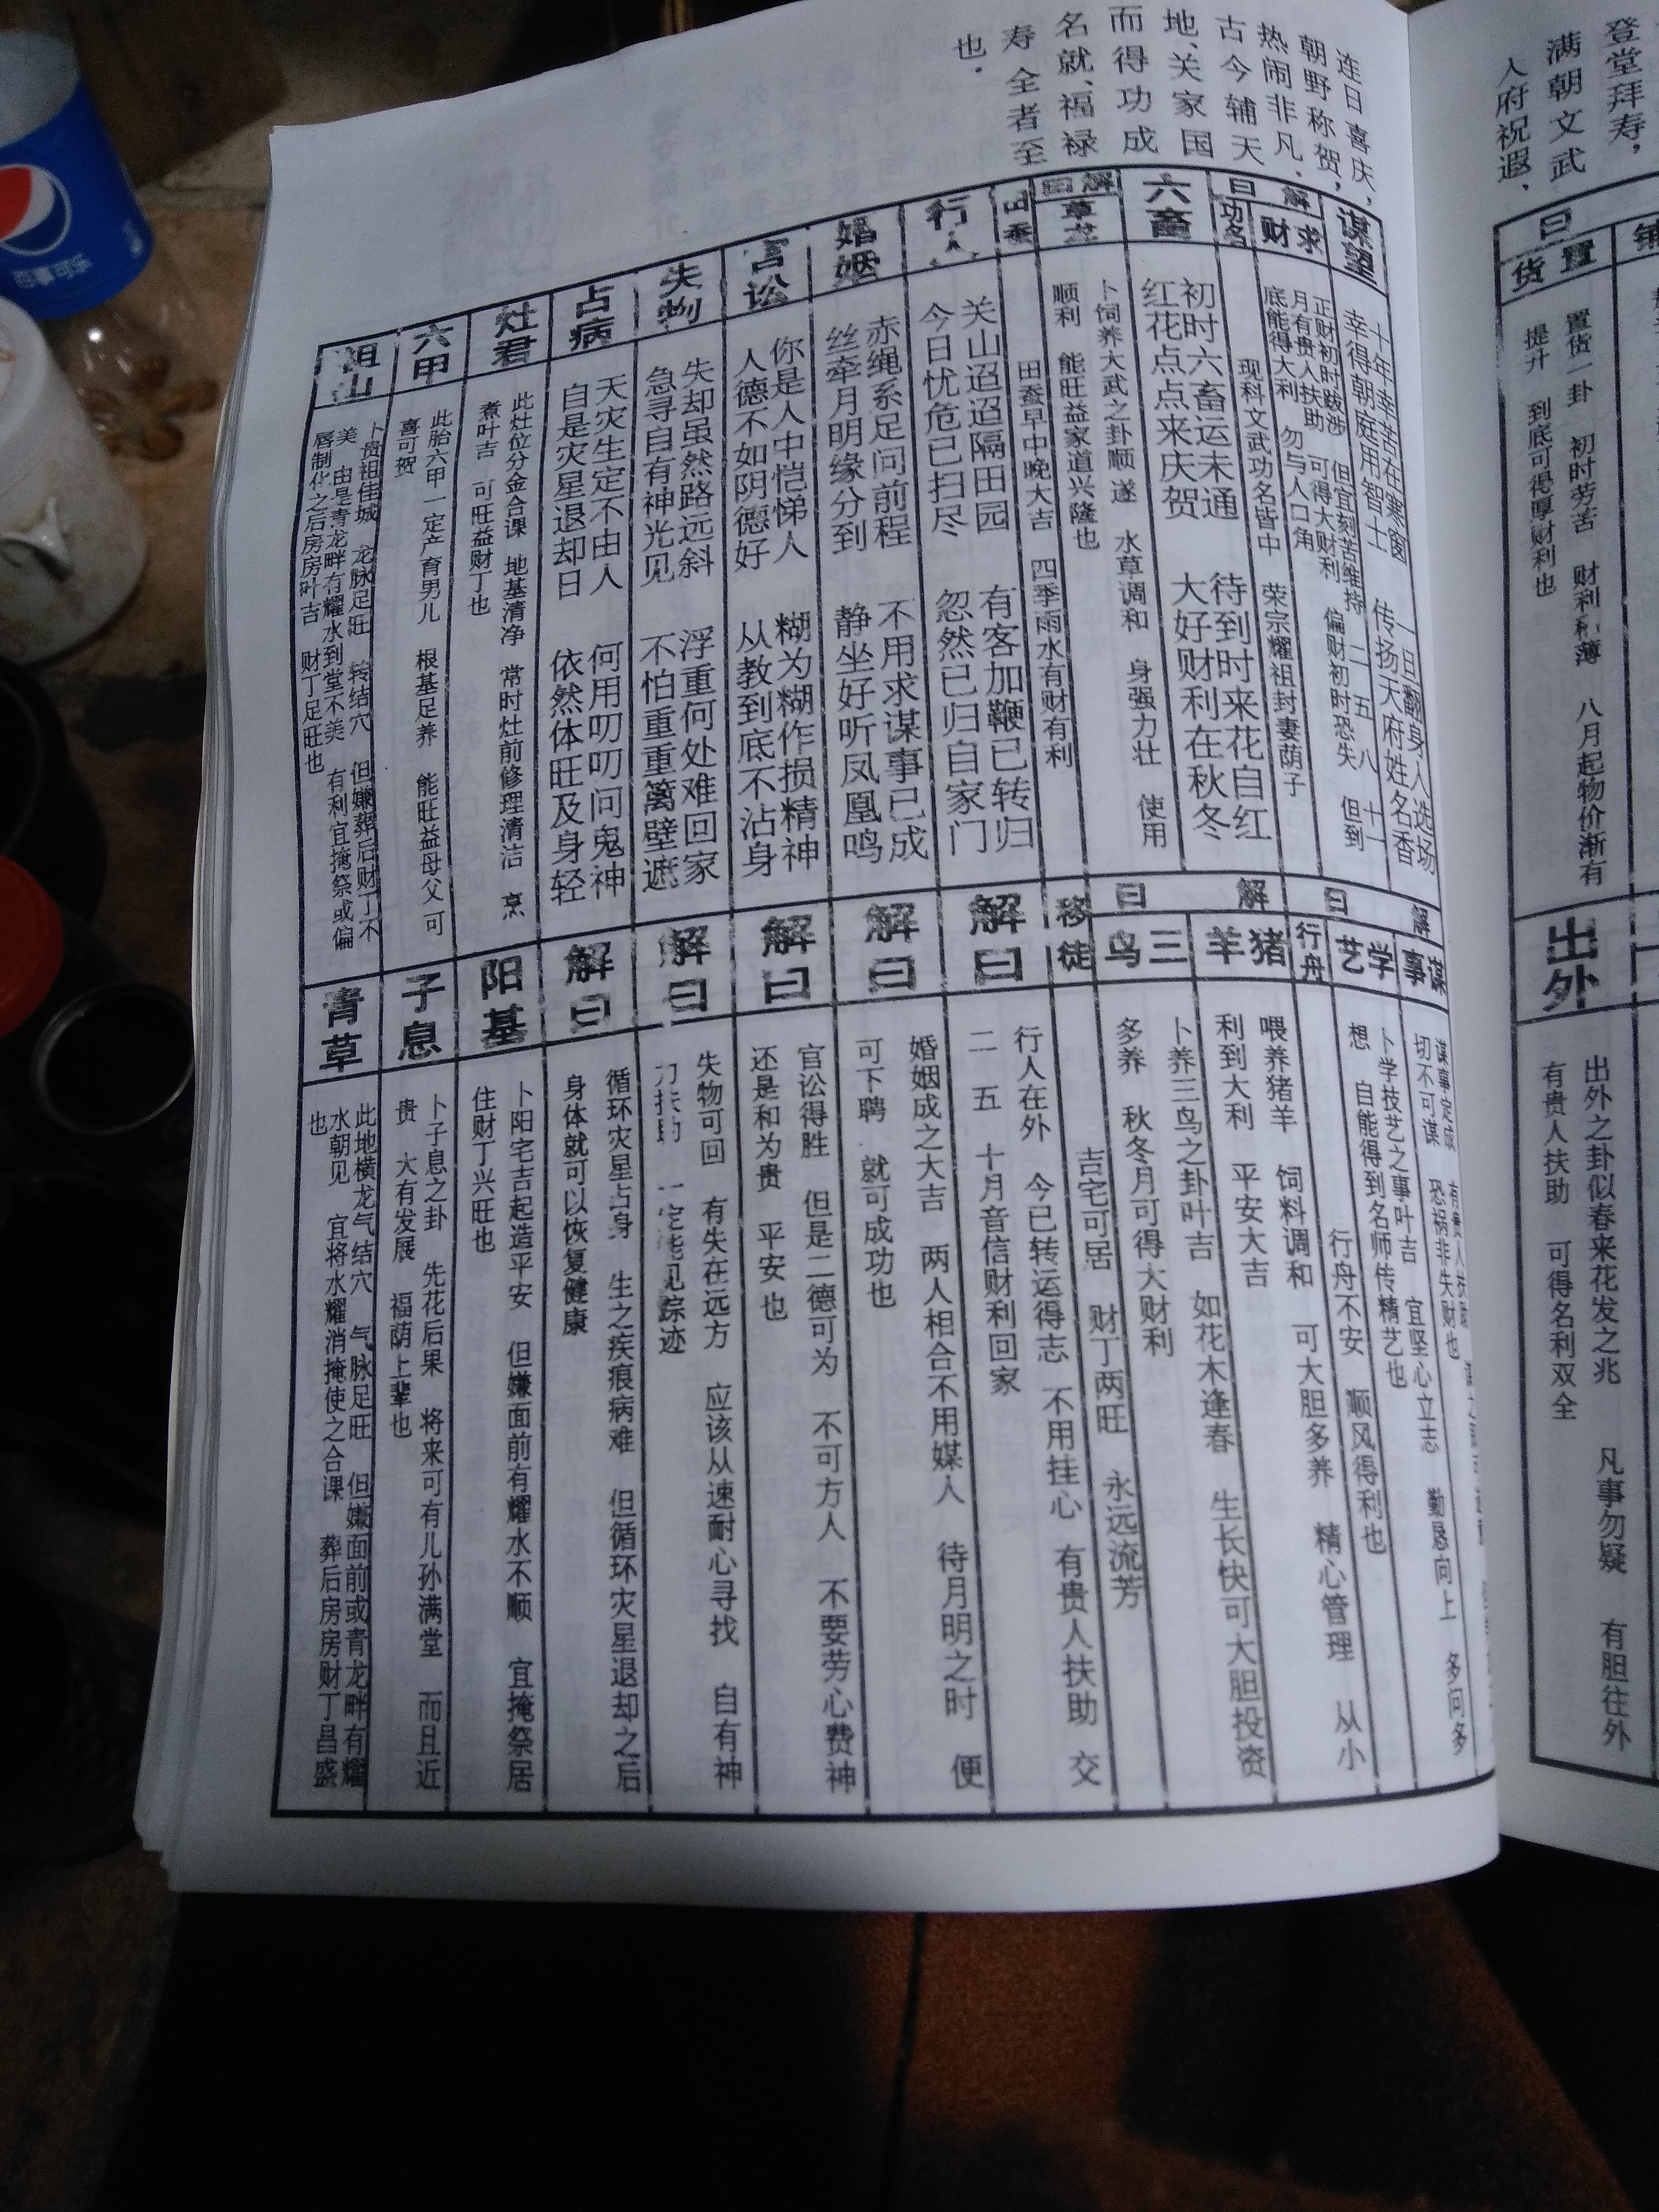 登堂拜寿，
满朝文武
入府祝遐、
曰
置货
置货一卦　初时劳苦　财利稀薄　八月起物价渐有
提升　到底可得厚财利也
出外
出外之卦似春来花发之兆　凡事勿疑　有胆往外
有贵人扶助　可得名利双全
连日喜庆，
朝野称贺，
热闹非凡、
古今辅天
地、关家国
而得功成
名就、福禄
寿全者至
也．
谋望
十年辛苦在寒窗　一旦翻身入选场
幸得朝庭用智士　传扬天府姓名香
解曰
求财
正财初时跋涉　但宜刻苦维持　二　五　八　十一
月有贵人扶助　可得大财利　偏财初时恐失　但到
底能得大利　勿与人口角
功名
现科文武功名皆中　荣宗耀祖封妻荫子
六畜
初时六畜运未通　待到时来花自红
红花点点来庆贺　大好财利在秋冬
解曰
卜饲养大武之卦顺遂　水草调和　身强力壮　使用
顺利　能旺益家道兴隆也
田蚕
田蚕早中晚大吉　四季雨水有财有利
行人
关山迢迢隔田园　有客加鞭已转归
今日忧危已扫尽　忽然已归自家门
婚姻
赤绳系足问前程　不用求谋事已成
丝牵月明缘分到　静坐好听凤凰鸣
官讼
你是人中恺悌人　糊为糊作损精神
人德不如阴德好　从教到底不沾身
失物
失却虽然路远斜　浮重何处难回家
急寻自有神光见　不怕重重篱壁遮
占病
天灾生定不由人　何用叨叨问鬼神
自是灾星退却日　依然体旺及身轻
灶君
此灶位分金合课　地基清净　常时灶前修理清洁　烹
煮叶吉　可旺益财丁也
六甲
此胎六甲一定产育男儿　根基足养　能旺益母父可
喜可贺
祖山
卜贵祖佳城　龙脉足旺　转结穴　但嫌葬后财丁不
美　由是青龙畔有耀水到堂不美　有利宜掩祭或偏
唇制化之后房房叶吉　财丁足旺也
解曰
谋事
谋事定成　有贵人扶助
切不可谋　恐祸非失财也
学艺
卜学技艺之事叶吉　宜坚心立志　勤恳向上　多问多
想　自能得到名师传精艺也
行舟
行舟不安　顺风得利也
解曰
猪羊
喂养猪羊　饲料调和　可大胆多养　精心管理　从小
利到大利　平安大吉
三鸟
卜养三鸟之卦叶吉　如花木逢春　生长快可大胆投资
多养　秋冬月可得大财利
移徒
吉宅可居　财丁两旺　永远流芳
解曰
行人在外　今已转运得志　不用挂心　有贵人扶助　交
二　五　十月音信财利回家
解曰
婚姻成之大吉　两人相合不用媒人　待月明之时　便
可下聘　就可成功也
解曰
官讼得胜　但是二德可为　不可方人　不要劳心费神
还是和为贵　平安也
解曰
失物可回　有失在远方　应该从速耐心寻找　自有神
力扶助　一定能见踪迹
解曰
循环灾星占身　生之疾痕病难　但循环灾星退却之后
身体就可以恢复健康
阳基
卜阳宅吉起造平安　但嫌面前有耀水不顺　宜掩祭居
住财丁兴旺也
子息
卜子息之卦　先花后果　将来可有儿孙满堂　而且近
贵　大有发展　福荫上辈也
青草
此地横龙气结穴　气脉足旺　但嫌面前或青龙畔有耀
水朝见　宜将水耀消掩使之合课　葬后房房财丁昌盛
也